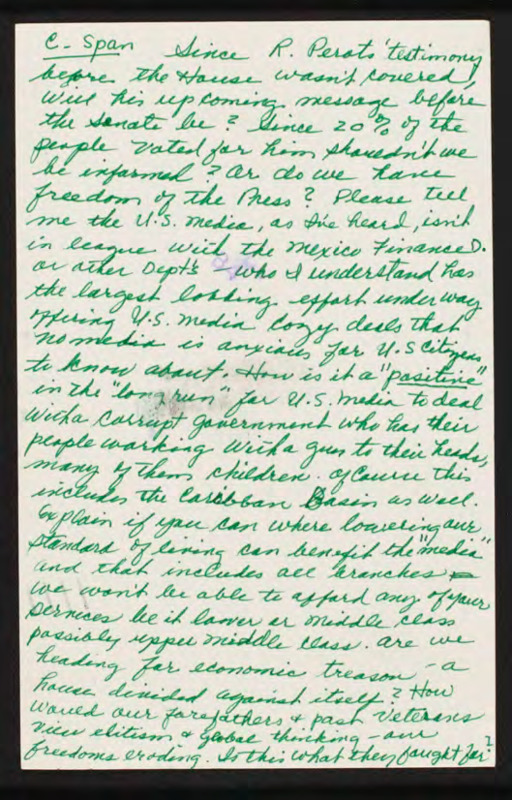 C-Span Since R. Perots' testimony
before the House wasn't covered,
will his upcoming message before
the Senate be? Since 20% of the
people voted for him shouldn't we
be informed? Or do we have
freedom of the Press? Please tell
me the U.S. media, as I've heard, isn't
in league with the Mexico Finance D.
or other Dept's - who I understand has
the largest lobbing effort underway
offering U.S. media cozy deals that
no media is anxious for U.S citizens
to know about. How is it a "positive"
in the "long run" for U.S. media to deal
with a corrupt government who has their
people working with a gun to their heads,
many of them children. Of course this
includes the Caribban Basin as well.
Explain if you can where lowering our
standard of living can benefit the "media"
and that includes all branches
we won't be able to afford any of your
services be it lower or middle class
possibly upper middle class. Are we
heading for economic treason - a
house divided against itself? How
would our forefathers & past Veterans
view elitism & global thinking - our
freedoms eroding. Is this what they fought for?